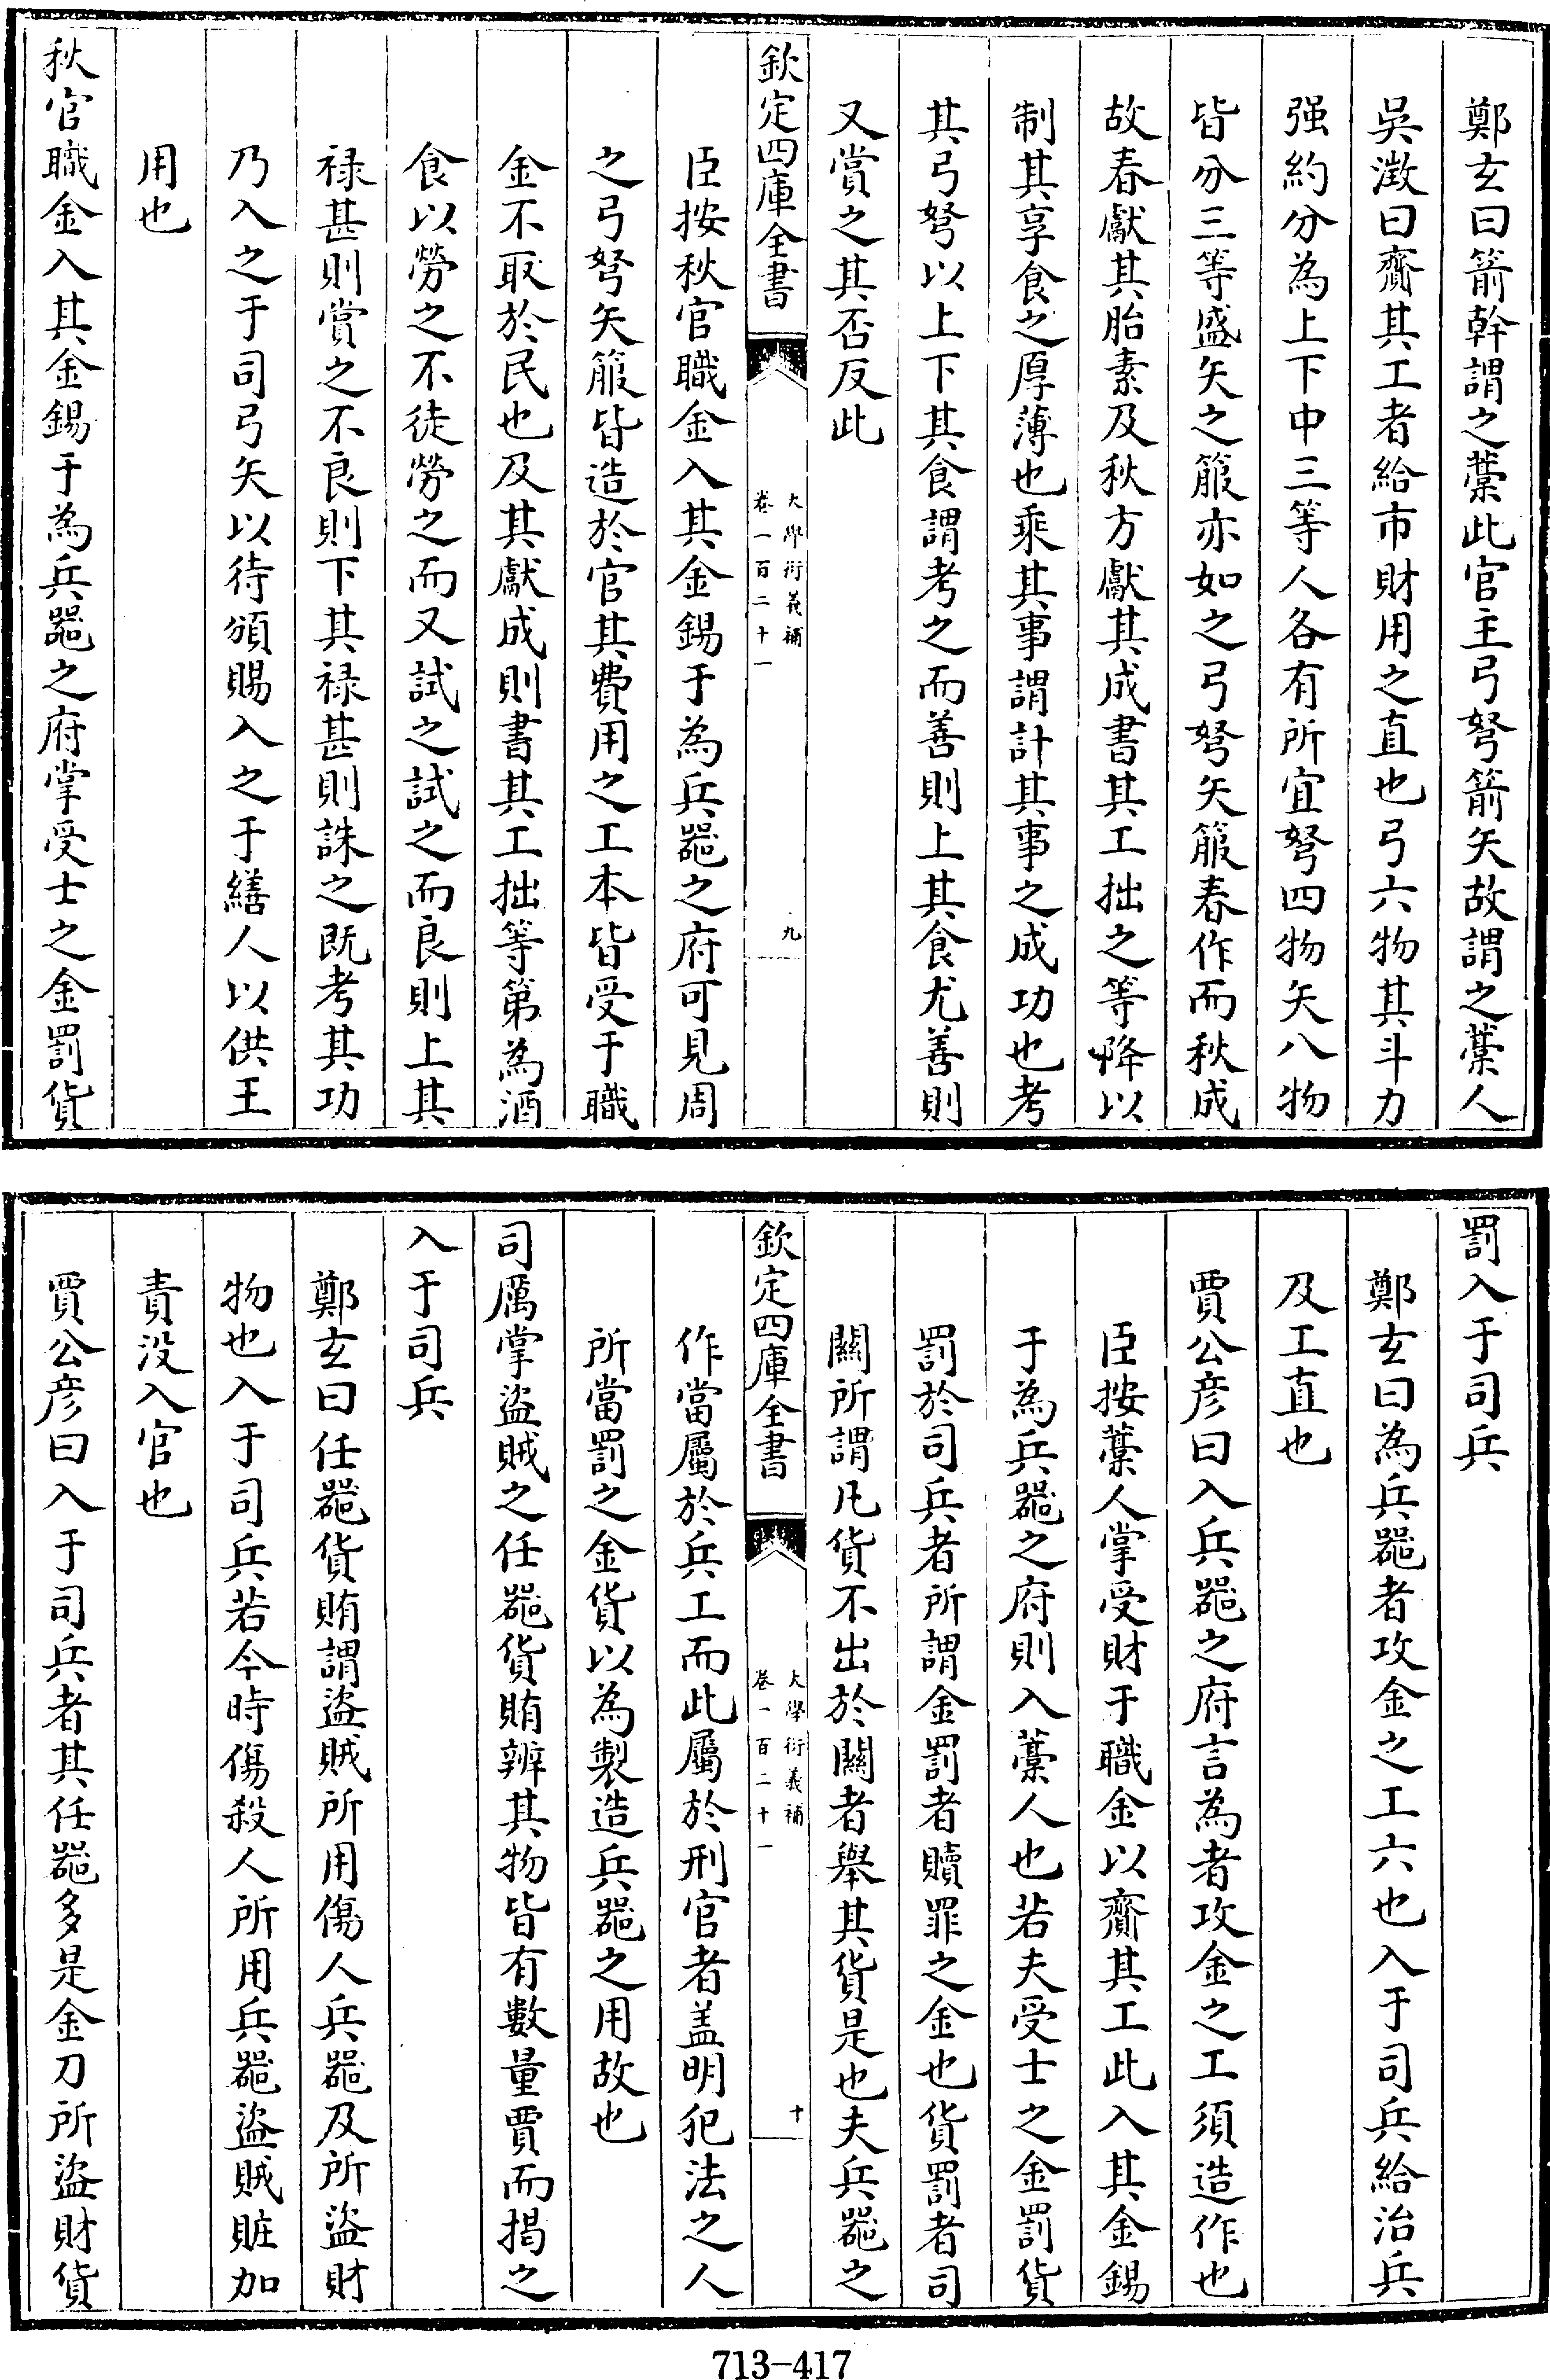 鄭玄曰箭幹謂之藁此官主弓弩箭矢故謂之藁人
吳澂曰齎其工者給市財用之直也弓六物其斗力
强約分為上下中三等人各有所宜弩四物矢八物
皆分三等盛矢之箙亦如之弓弩矢箙春作而秋成
故春獻其胎素及秋方獻其成書其工拙之等降以
制其享食之厚薄也乘其事謂計其事之成功也考
其弓弩以上下其食謂考之而善則上其食尤善則
又賞之其否反此
欽定四庫全書
大學衍義補
卷一百二十一
九
臣按秋官職金入其金錫于為兵器之府可見周
之弓弩矢箙皆造於官其費用之工本皆受于職
金不取於民也及其獻成則書其工拙等第為酒
食以勞之不徒勞之而又試之試之而良則上其
禄甚則賞之不良則下其禄甚則誅之既考其功
乃入之于司弓矢以待頒賜入之于繕人以供王
用也
秋官職金入其金錫于為兵器之府掌受士之金罰貨
罰入于司兵
鄭玄曰為兵器者攻金之工六也入于司兵給治兵
及工直也
賈公彦曰入兵器之府言為者攻金之工須造作也
臣按藁人掌受財于職金以齎其工此入其金錫
于為兵器之府則入藁人也若夫受士之金罰貨
罰於司兵者所謂金罰者贖罪之金也貨罰者司
關所謂凡貨不出於關者舉其貨是也夫兵器之
欽定四庫全書
大學衍義補
卷一百二十一
十
作當屬於兵工而此屬於刑官者盖明犯法之人
所當罰之金貨以為製造兵器之用故也
司厲掌盜賊之任器貨賄辨其物皆有數量賈而揭之
入于司兵
鄭玄曰任器貨賄謂盜賊所用傷人兵器及所盜財
物也入于司兵若今時傷殺人所用兵器盜賊賍加
責没入官也
賈公彦曰入于司兵者其任器多是金刀所盜財貨
713-417